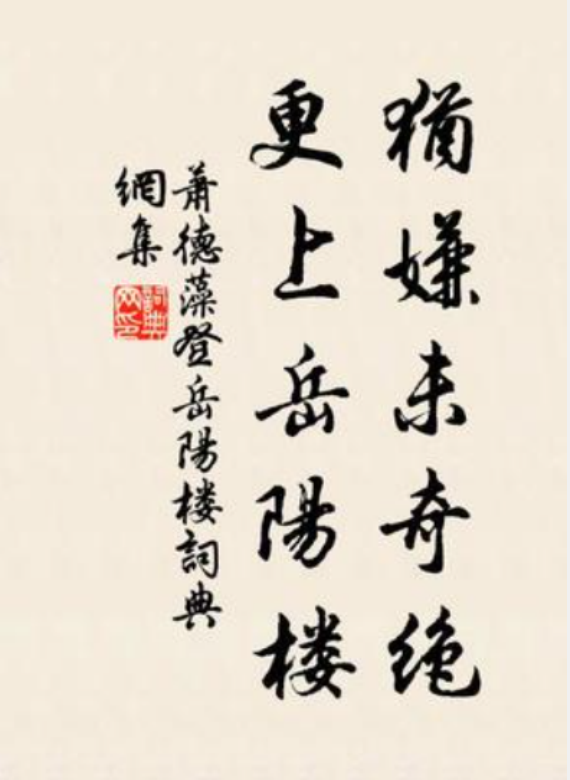 猶嫌未奇绝
更上岳陽楼
蕭德藻登岳陽楼詞典
網集
詞典网印